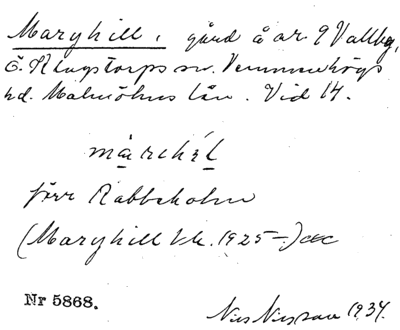 Maryhill, gård å ar. 9 Vallby,
Ö. Klagstorps sn. Vemmenhögs
hd. Malmöhus län. Vid 14.
märchil
förr Rabbeholm
(Maryhill kk. 1925–)
Nr 5868.
Nils Nilsson 1934.